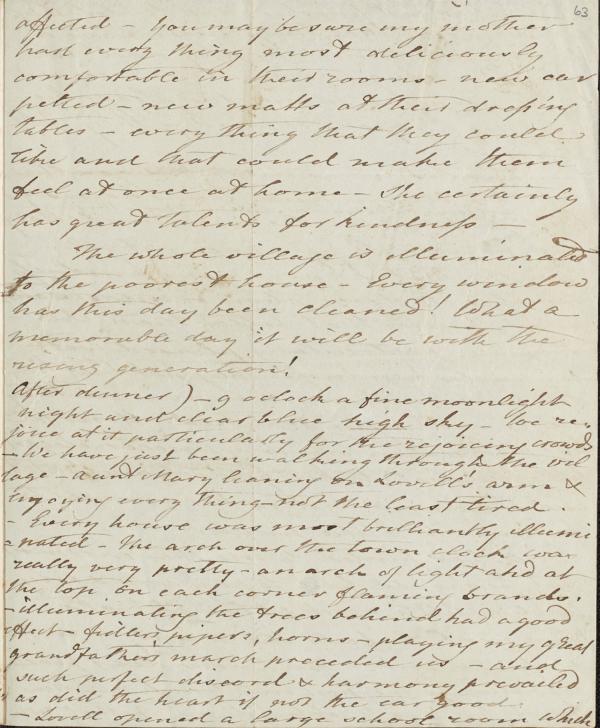 63
affected – You may be sure my mother
had every thing most deliciously
comfortable in their rooms – new car
petted – new matts at their dressing
tables – every thing that they could
like and that could make them
feel at once at home – She certainly
has great talents for kindness –
The whole village is illuminated
to the poorest house – Every window
has this day been cleaned! What a
memorable day it will be with the
rising generation!
After dinner) – 9 oclock a fine moonlight
night and clear blue high sky – We re„
joice at it particularly for the rejoicing crowds
– We have just been walking through the vil
lage – aunt Mary leaning on Lovell's arm &
enjoying every thing – not the least tired.
– Every house was most brilliantly illumi
=nated – the arch over the town clock was
really very pretty – an arch of light and at
the top on each corner flaming brands.
– illuminating the trees behind had a good
effect – fidlers, pipers, horns – playing my great
grandfathers march preceded us – and
such perfect discord & harmony prevailed
as did the heart if not the ear good
– Lovell opened a large school room which